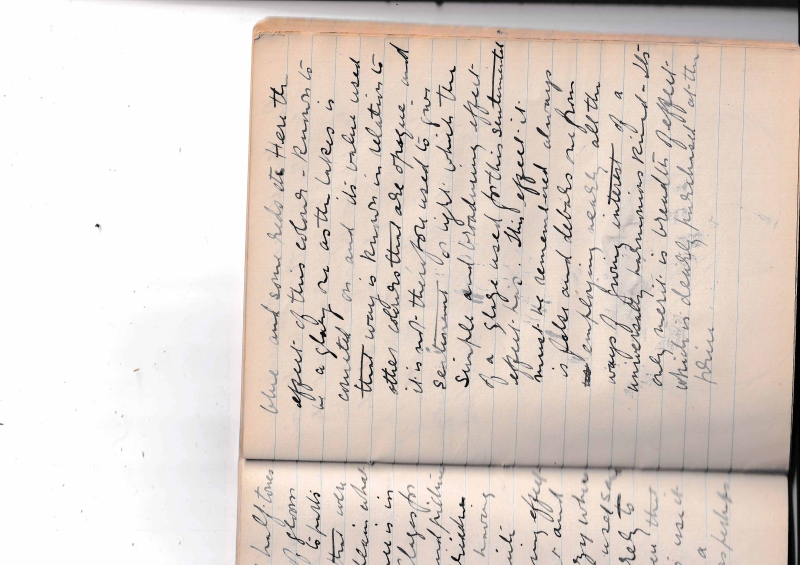 blue and some reds etc Here the
effect of this colour - known to
as a glaze or as the lakes is
counted on and its value used
that way is known in relation to
other colours that are opaque and
it is not therefore used to give
sentiment or light which the
simple and broadening effect
of a glaze used for this sentimental
effect has This effect it
must be remembered always
is false and debars one from
employing nearly all the
ways of giving interest of a
universally harmonious kind - Its
only merit is breadth of effect
which is dearly purchased at the
price
half tones
of gloom
to puts
that were
when
is in
glazes for
and picture
having
effect
and
when
used say
rely to
in that
use it
a
as perhaps